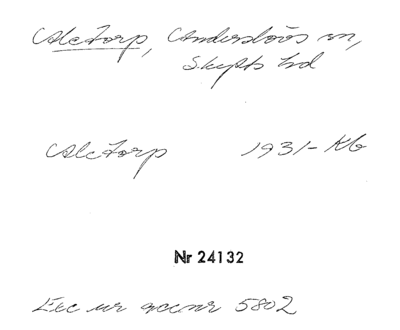 Aletorp, Anderslövs sn,
Skytts hd
Aletorp 1931- Kb
Nr 24132
Exc ur accnr 5802